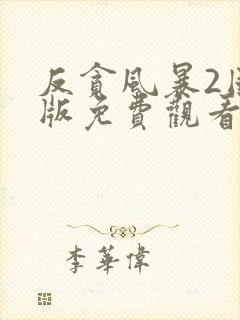 反貪風暴2國
版免費觀看
李華偉